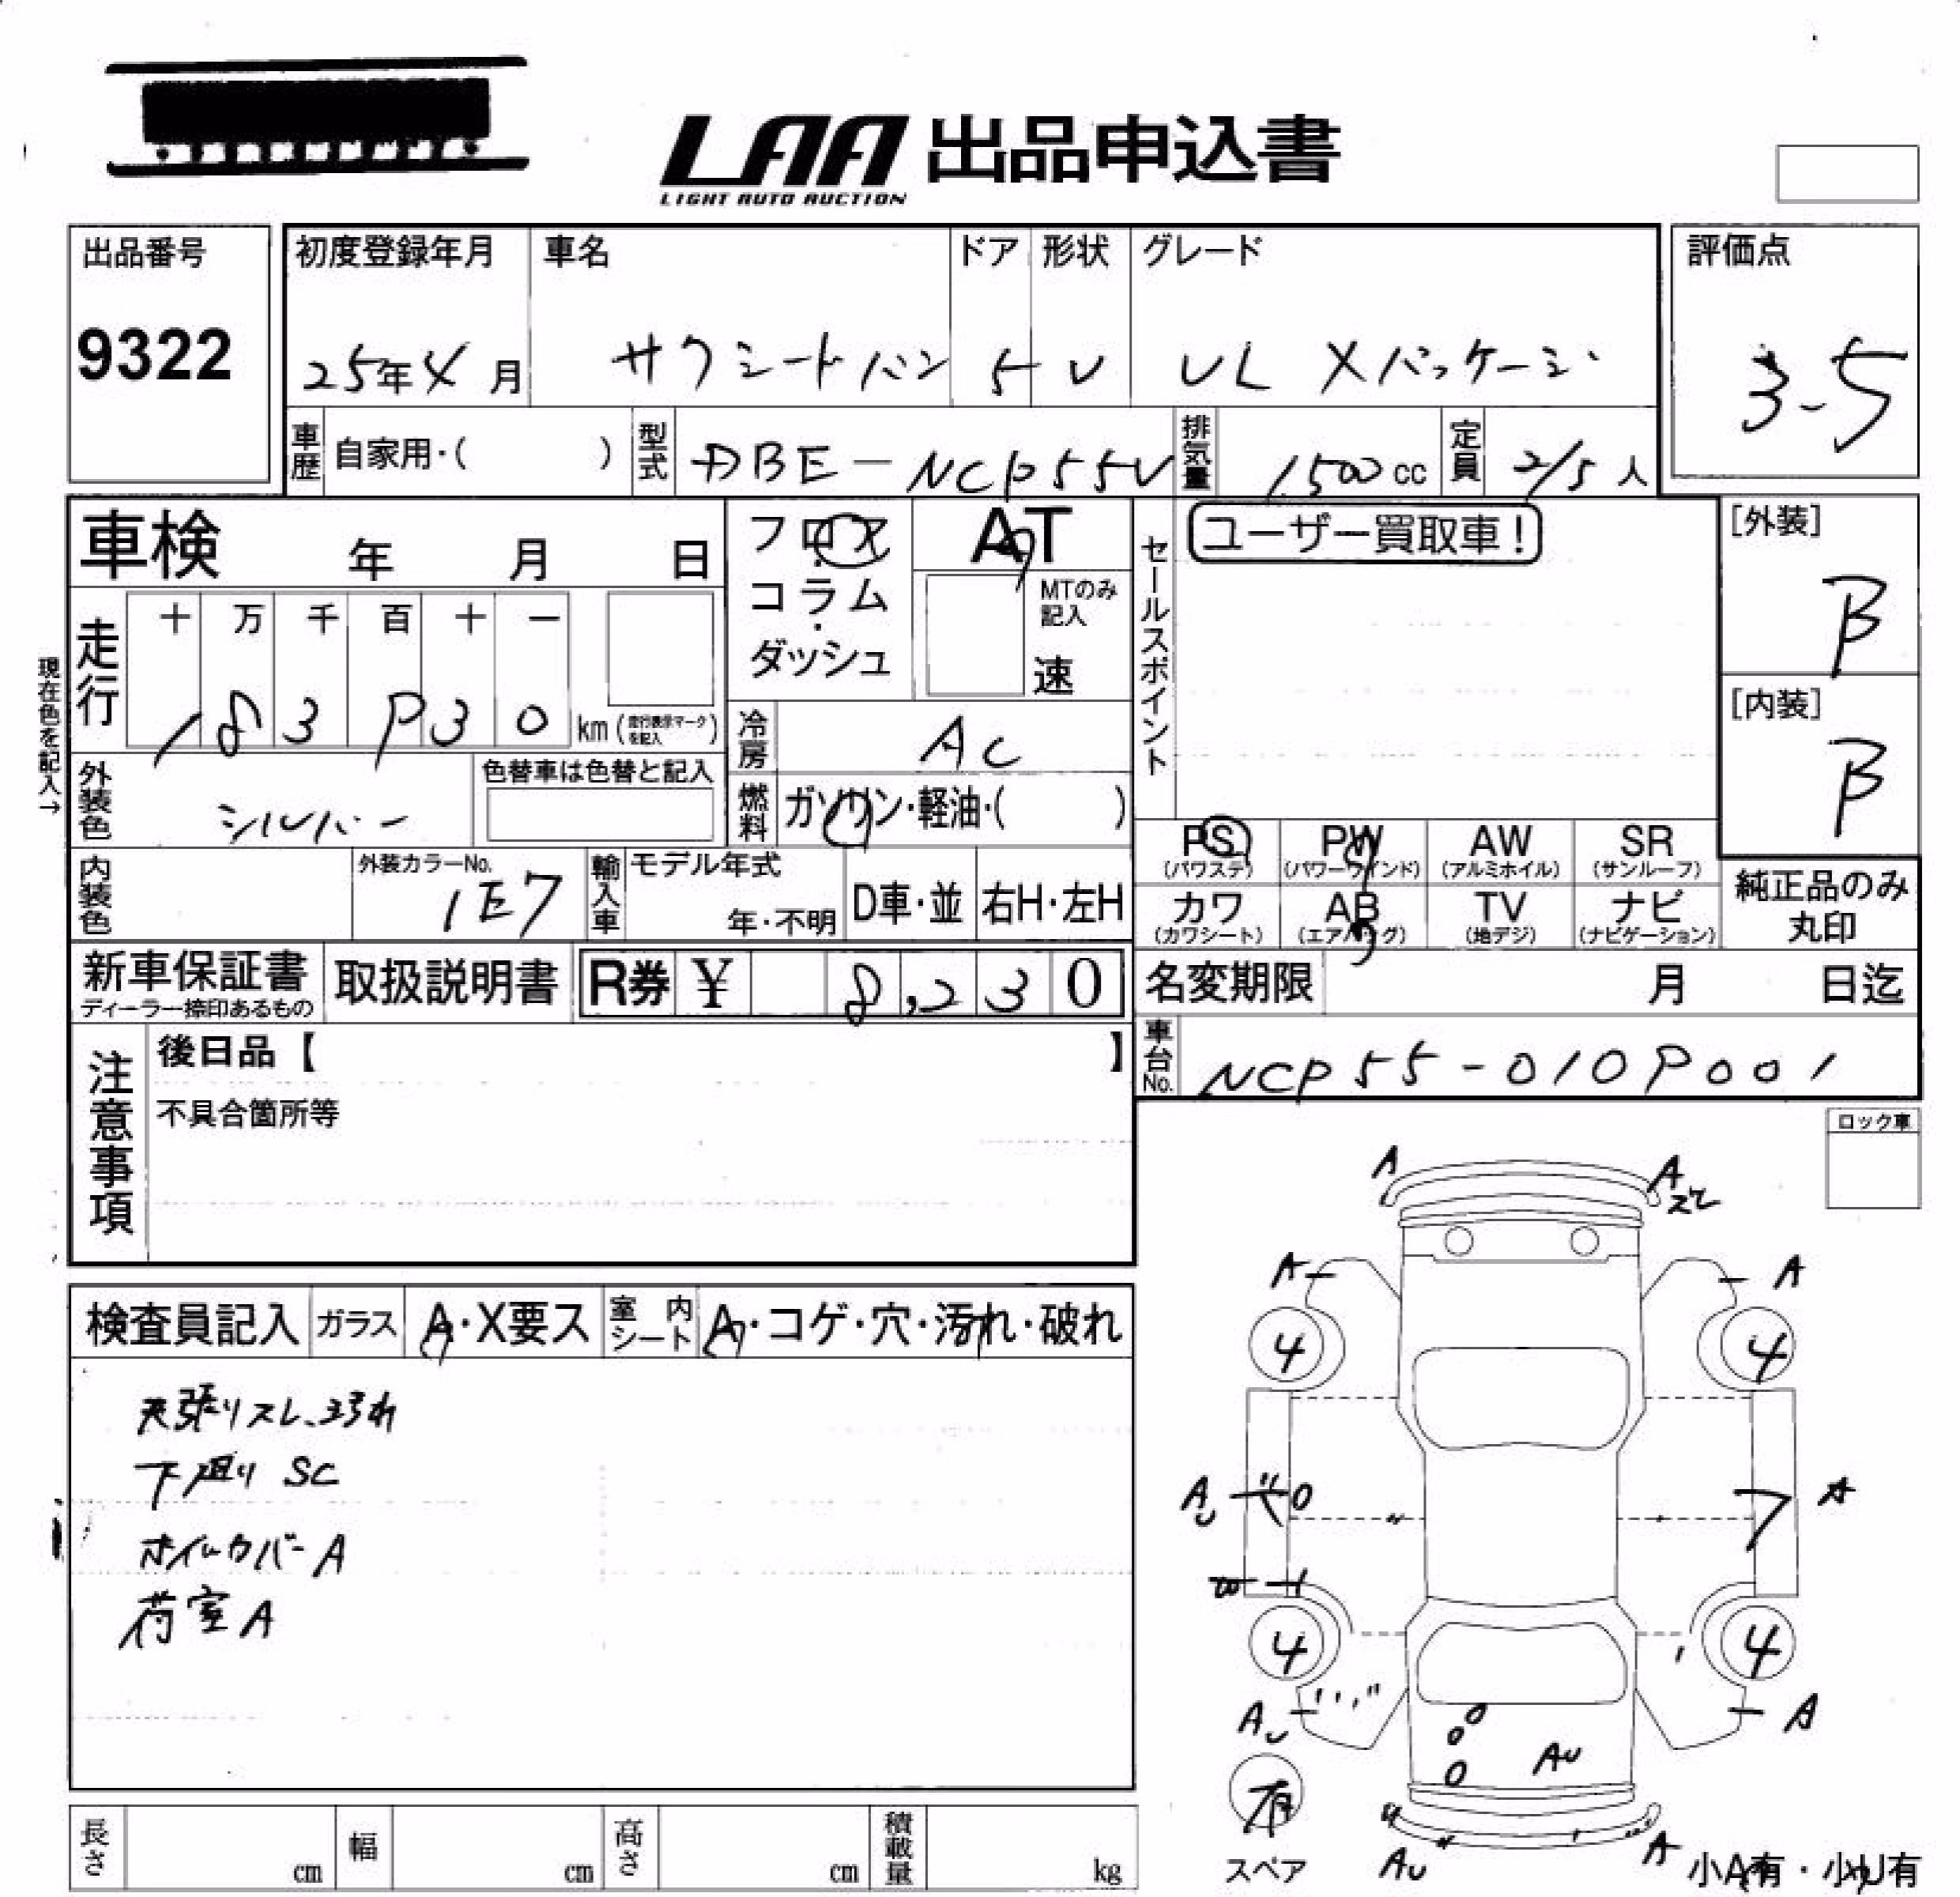 LAA 出品申込書
LIGHT AUTO AUCTION
出品番号
9322
初度登録年月 車名 ドア 形状 グレード
25年4月 サクシードバン 5 V UL Xパッケージ
評価点
3-5
車歴 自家用・( ) 型式 DBE-NCP55V 排気量 1500cc 定員 2/5人
車検 年 月 日
フロア・コラム・ダッシュ
AT
MTのみ記入
速
セールスポイント
ユーザー買取車!
[外装]
B
[内装]
B
現在色を記入→
走行 十 万 千 百 十 一
183930 km (走行表示マークを記入)
冷房 AC
外装色 シルバー 色替車は色替と記入
燃料 ガソリン・軽油・( )
PS PW AW SR
(パワステ) (パワーウインド) (アルミホイル) (サンルーフ)
カワ AB TV ナビ
(カワシート) (エアバッグ) (地デジ) (ナビゲーション)
純正品のみ
丸印
内装色 外装カラーNo. 1E7
輸入車 モデル年式 年・不明 D車・並 右H・左H
新車保証書 取扱説明書 R券 ¥ 8,230
ディーラー捺印あるもの
名変期限 月 日迄
車台No. NCP55-0109001
注意事項
後日品【 】
不具合箇所等
ロック車
検査員記入 ガラス A・X要ス 室内シート A・コゲ・穴・汚れ・破れ
天張りスレ、汚れ
下廻り SC
ホイルカバーA
荷室A
A A
スレ
A A
4 4
AU A
4 4
AU A
AU
有
スペア
AU A
小A有・小U有
長さ cm 幅 cm 高さ cm 積載量 kg